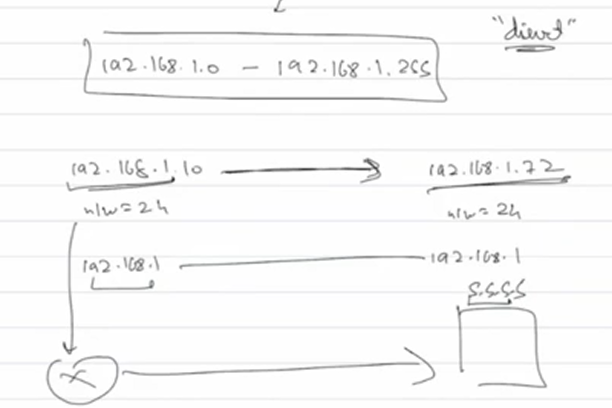 "direct"
192.168.1.0 - 192.168.1.255
192.168.1.10 → 192.168.1.72
n/w = 24 n/w = 24
192.168.1 — 192.168.1
5.5.5.5